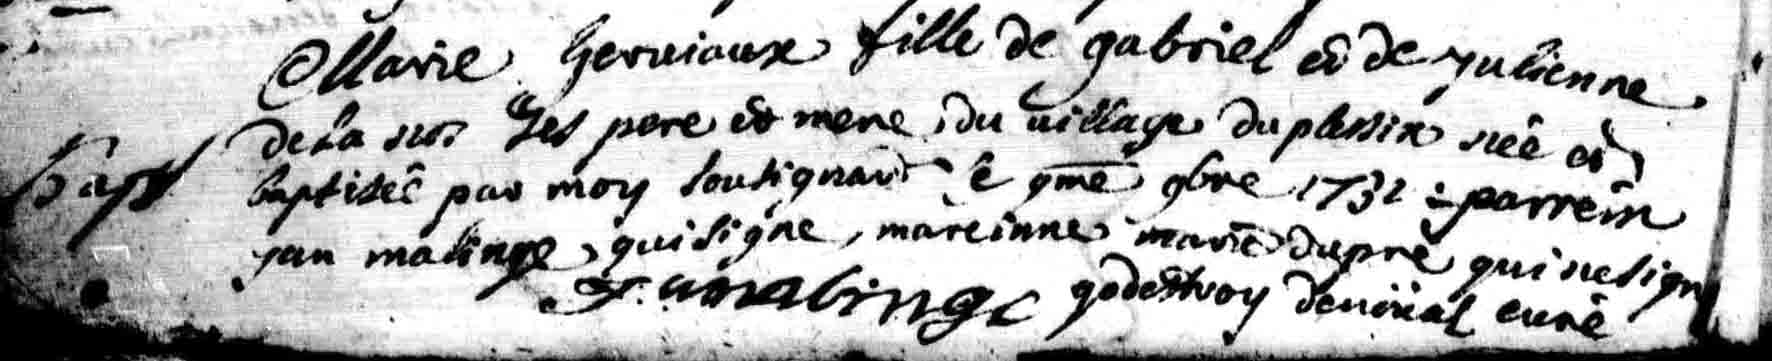 Marie Gerviaux fille de gabriel et de Julienne
Bapt
de la ses pere et mere du village du plessix née et
baptisée par moy soussignant le 9me 9bre 1732 : parrein
jan malinge qui signe, mareinne marie dupré qui ne sign
J. malinge godeffroy curé